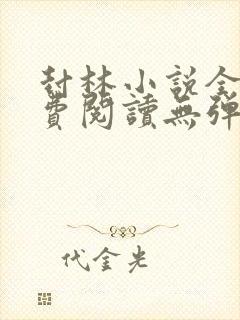 封林小説全
費閱讀無彈
代金光